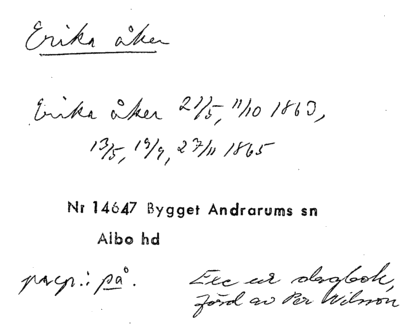 Erika åker
Erika åker 21/5, 11/10 1863,
13/5, 19/9, 27/11 1865
Nr 14647 Bygget Andrarums sn
Albo hd
prep.: på.
Exc ur dagbok,
förd av Per Nilsson